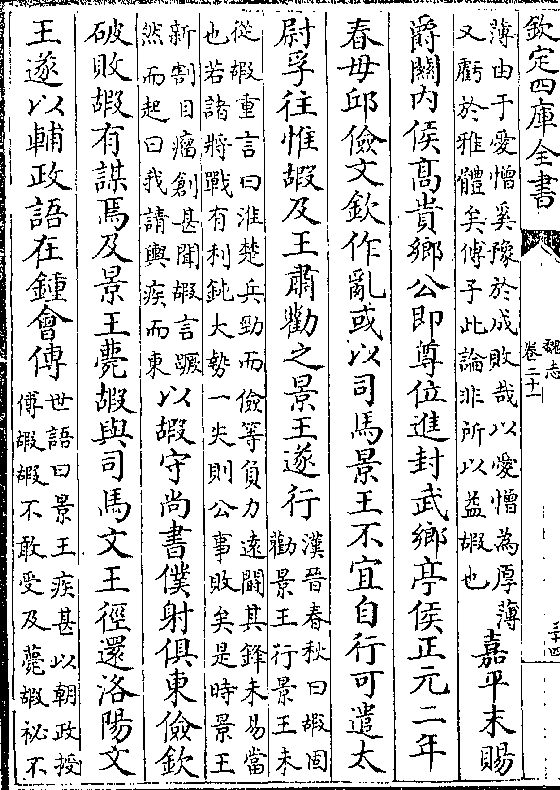 欽定四庫全書
魏志
卷二十一
薄由于愛憎奚豫於成敗哉以愛憎為厚薄
又虧於雅體矣傅子此論非所以益嘏也
嘉平末賜
爵關内侯髙貴鄉公即尊位進封武鄉亭侯正元二年
春毋邱儉文欽作亂或以司馬景王不宜自行可遣太
尉孚往惟嘏及王肅勸之景王遂行
漢晉春秋曰嘏固
勸景王行景王未
從嘏重言曰淮楚兵勁而儉等負力逺鬬其鋒未易當
也若諸將戰有利鈍大勢一失則公事敗矣是時景王
新割目瘤創甚聞嘏言蹶
然而起曰我請輿疾而東
以嘏守尚書僕射俱東儉欽
破敗嘏有謀焉及景王薨嘏與司馬文王徑還洛陽文
王遂以輔政語在鍾會傳
世語曰景王疾甚以朝政授
傅嘏嘏不敢受及薨嘏祕不